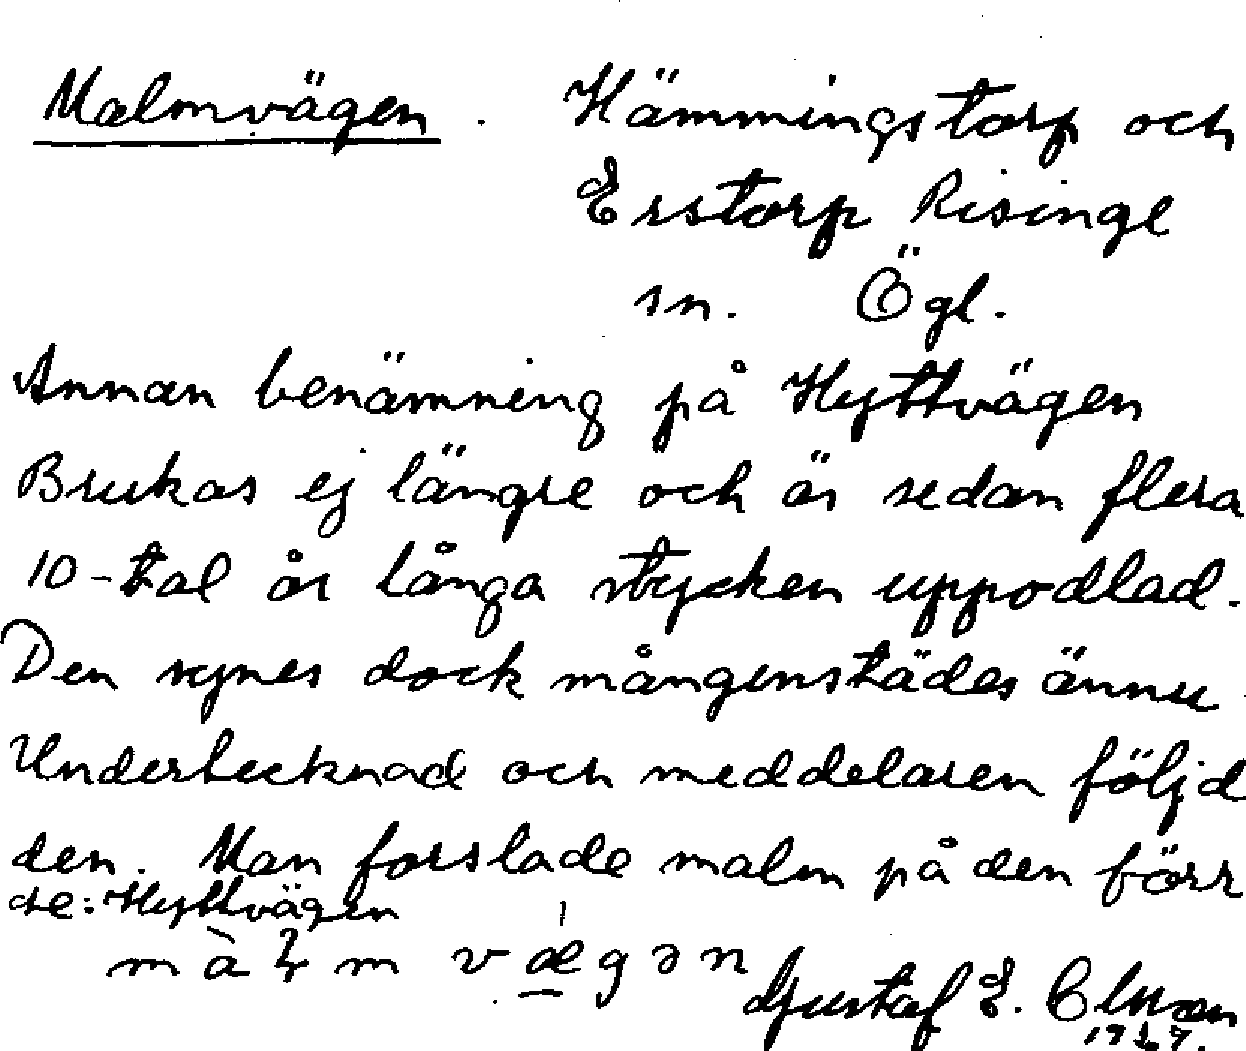 Malmvägen. Hämmingstorp och
Erstorp Risinge
sn. Ögl.
Annan benämning på Hyttvägen
Brukas ej längre och är sedan flera
10-tal år långa stycken uppodlad.
Den synes dock mångenstädes ännu
Undertecknad och meddelaren följd
den. Man forslade malm på den förr
se: Hyttvägen
Gustaf E.